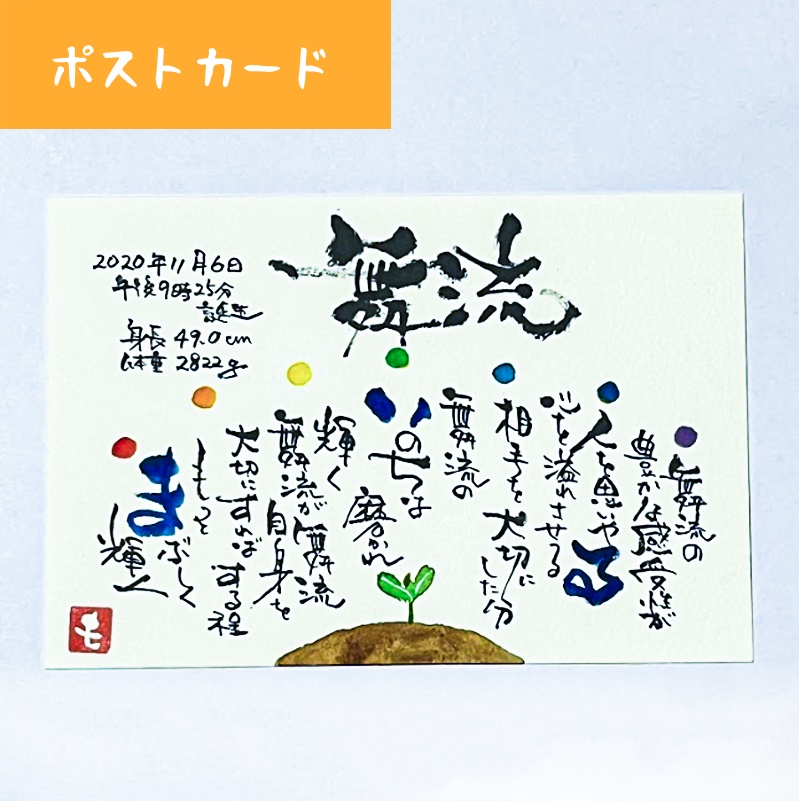 ポストカード
舞流
2020年11月6日
午後9時25分
誕生
身長 49.0cm
体重 2822g
舞流の
豊かな感受性が
人を思いやる
心を溢れさせる
相手を大切にした分
舞流の
いのちは
磨かれ
輝く
舞流が舞流
自身を
大切にすればする程
もっと
まぶしく
輝く
も